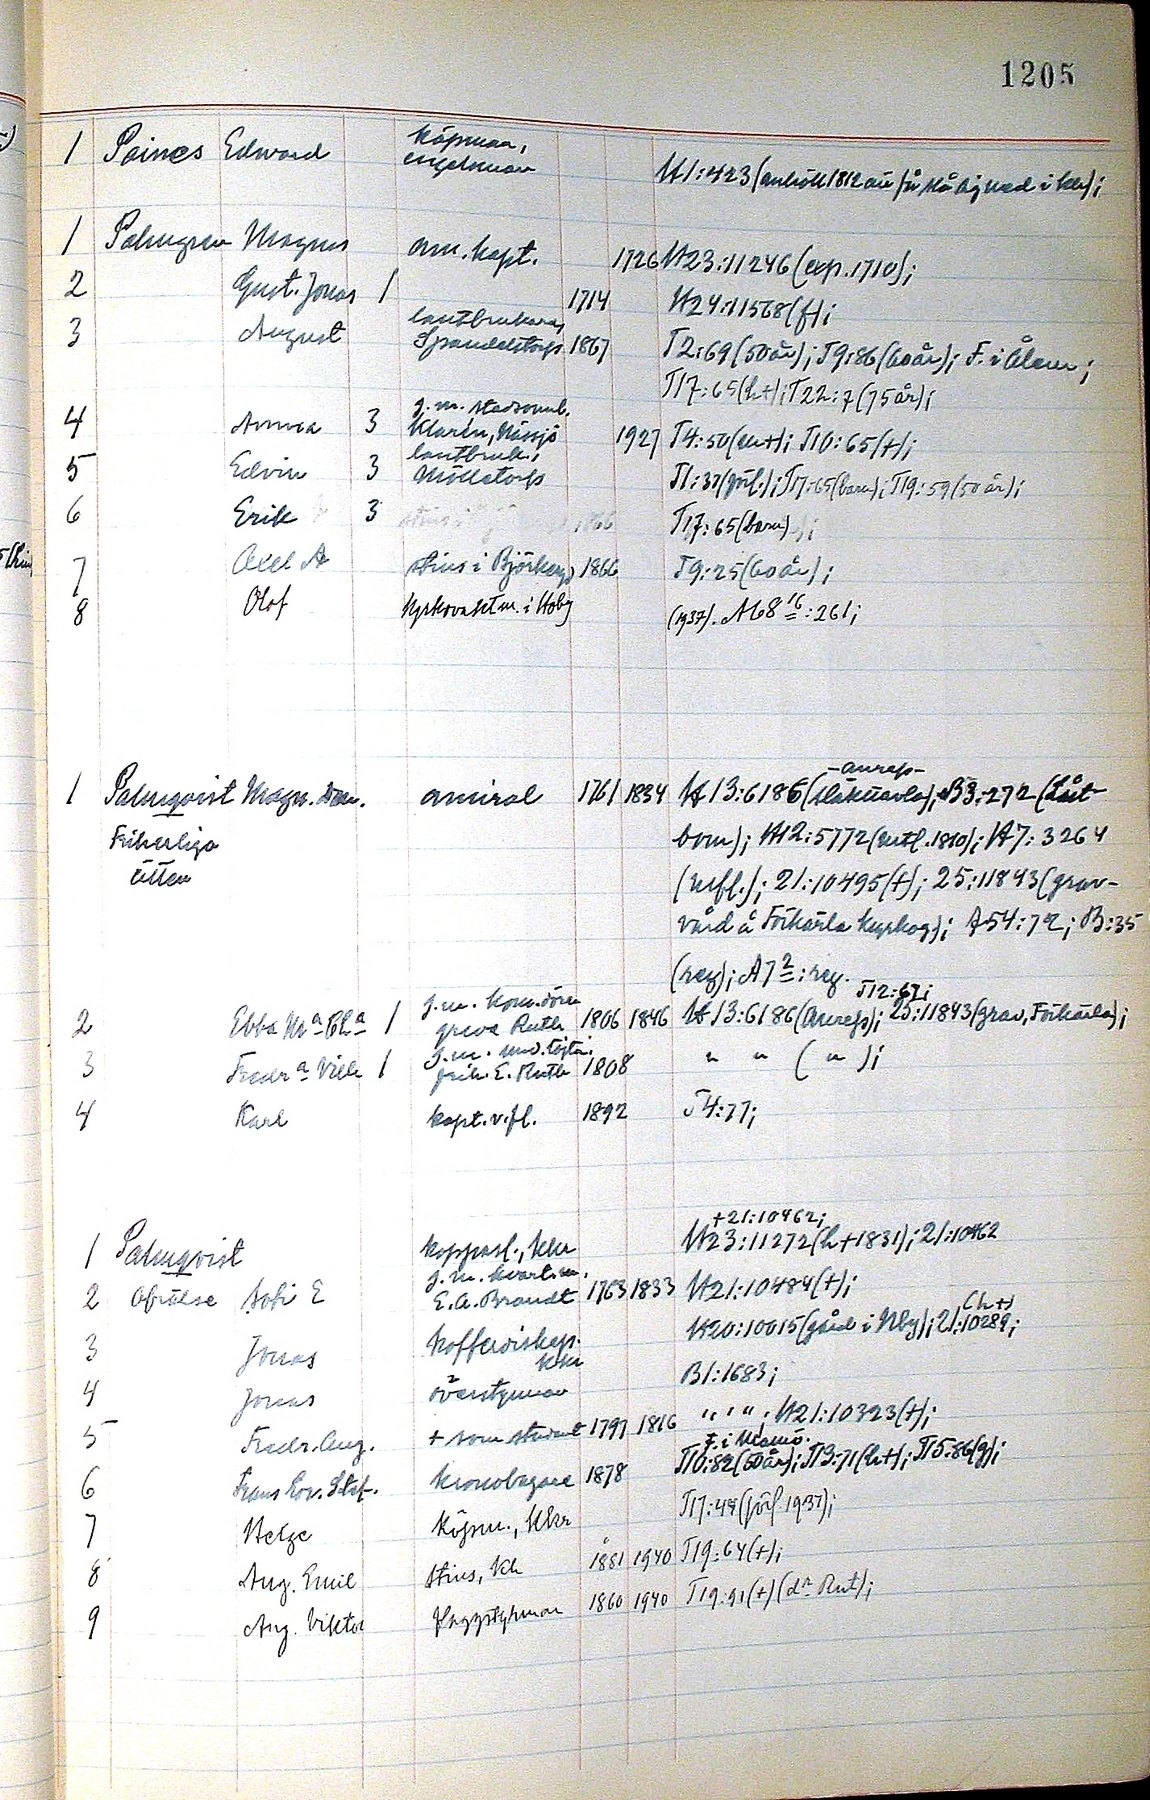 1205
1 Paines Edward köpman,
engelsman
H1:423 (anhöll 1812 om
1 Palmgren Magnus am. kapt. 1726 H23:11246 (exp. 1710);
2 Gust. Jonas 1 1714 H24:11568 (f);
3 August lantbrukare, 1867 T2:69 (50 år); T9:86 (60 år); F. i
T17:65 (h+); T22:7 (75 år);
4 Anna 3 g.m. stadsomb.
Klarin, Nässjö 1927 T4:50 (en+); T10:65 (+);
5 Edvin 3 lantbruk.,
Mölletorp T1:37 (förl.); T17:65 (barn); T19:59 (50 år);
6 Erik 3 T17:65 (barn);
7 Axel A i Björkeryd 1866 T9:25 (60 år);
8 Olof Kyrkovaktm. i Hoby (1937). A68 16:261;
1 Palmqvist Magn. Dan. amiral 1761 1834 H13:6186 (släkttavla); B3:272 (Låst-
-anrep-
Friherrliga
ätten
bom); H12:5772 (utl. 1810); H7:3264
(utfl.); 21:10495 (+); 25:11843 (grav-
vård å Förkärla kyrkog); A54:72; B:35
(reg); A7 2:reg.
T12:67;
2 Ebba M:a Ch:a 1 g.m. kom.dören
greve Ruth 1806 1846 H13:6186 (Anrep); 25:11843 (grav, Förkärla);
3 Fredr:a Vilh 1 g.m. und.löjtn.
frih. E. Ruth 1808 " " ( " );
4 Karl kapt. v. fl. 1892 T4:77;
+21:10462;
1 Palmqvist koppasl., Kkr H23:11272 (h+1831); 21:10462
2 Ofrälse Sofi E g.m. kvartm.
E. A. Brandt 1763 1833 H21:10484 (+);
3 Jonas koffardikap.
Kkr H20:10015 (gård i Nby); 21:10289;
(h+)
4 Jonas överstyrman B1:1683;
5 Fredr. Aug. + som student 1797 1816 " " " ; H21:10323 (+);
6 Frans Gov. Stef. kronobagare 1878 F. i
T10:82 (50 år); T13:71 (h+); T15:86 (g);
7 Helge köpm., Kkr T17:49 (förl. 1937);
8 Aug. Emil Kh 1881 1940 T19:64 (+);
9 Aug. Viktor flaggstyrman 1860 1940 T19:91 (+) (dr Rut);